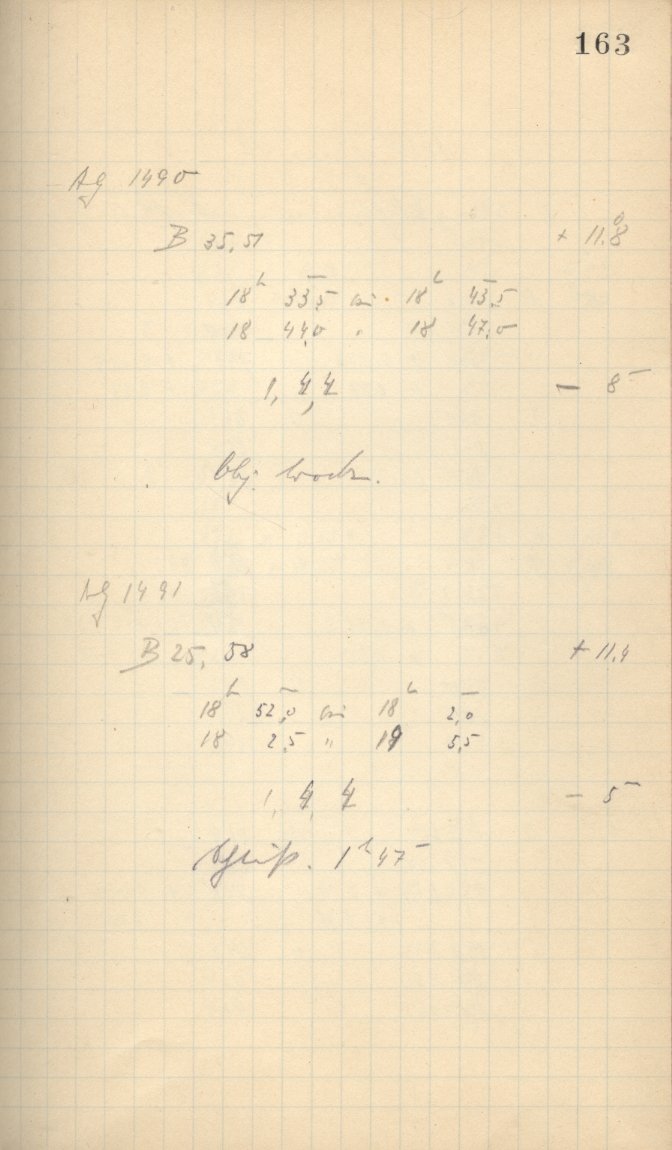 163
Ag 1490
B 35,51 + 11,8°
18h 33,5m bis 18h 43,5m
18 44,0 " 18 47,0
1, 4, 4 – 8m
Obj. trocken.
Ag 1491
B 25,58 + 11,4
18h 52,0m bis 18h 2,0m
18 2,5 " 19 5,5
1, 4, 4 – 5m
Schluß. 1h 47m